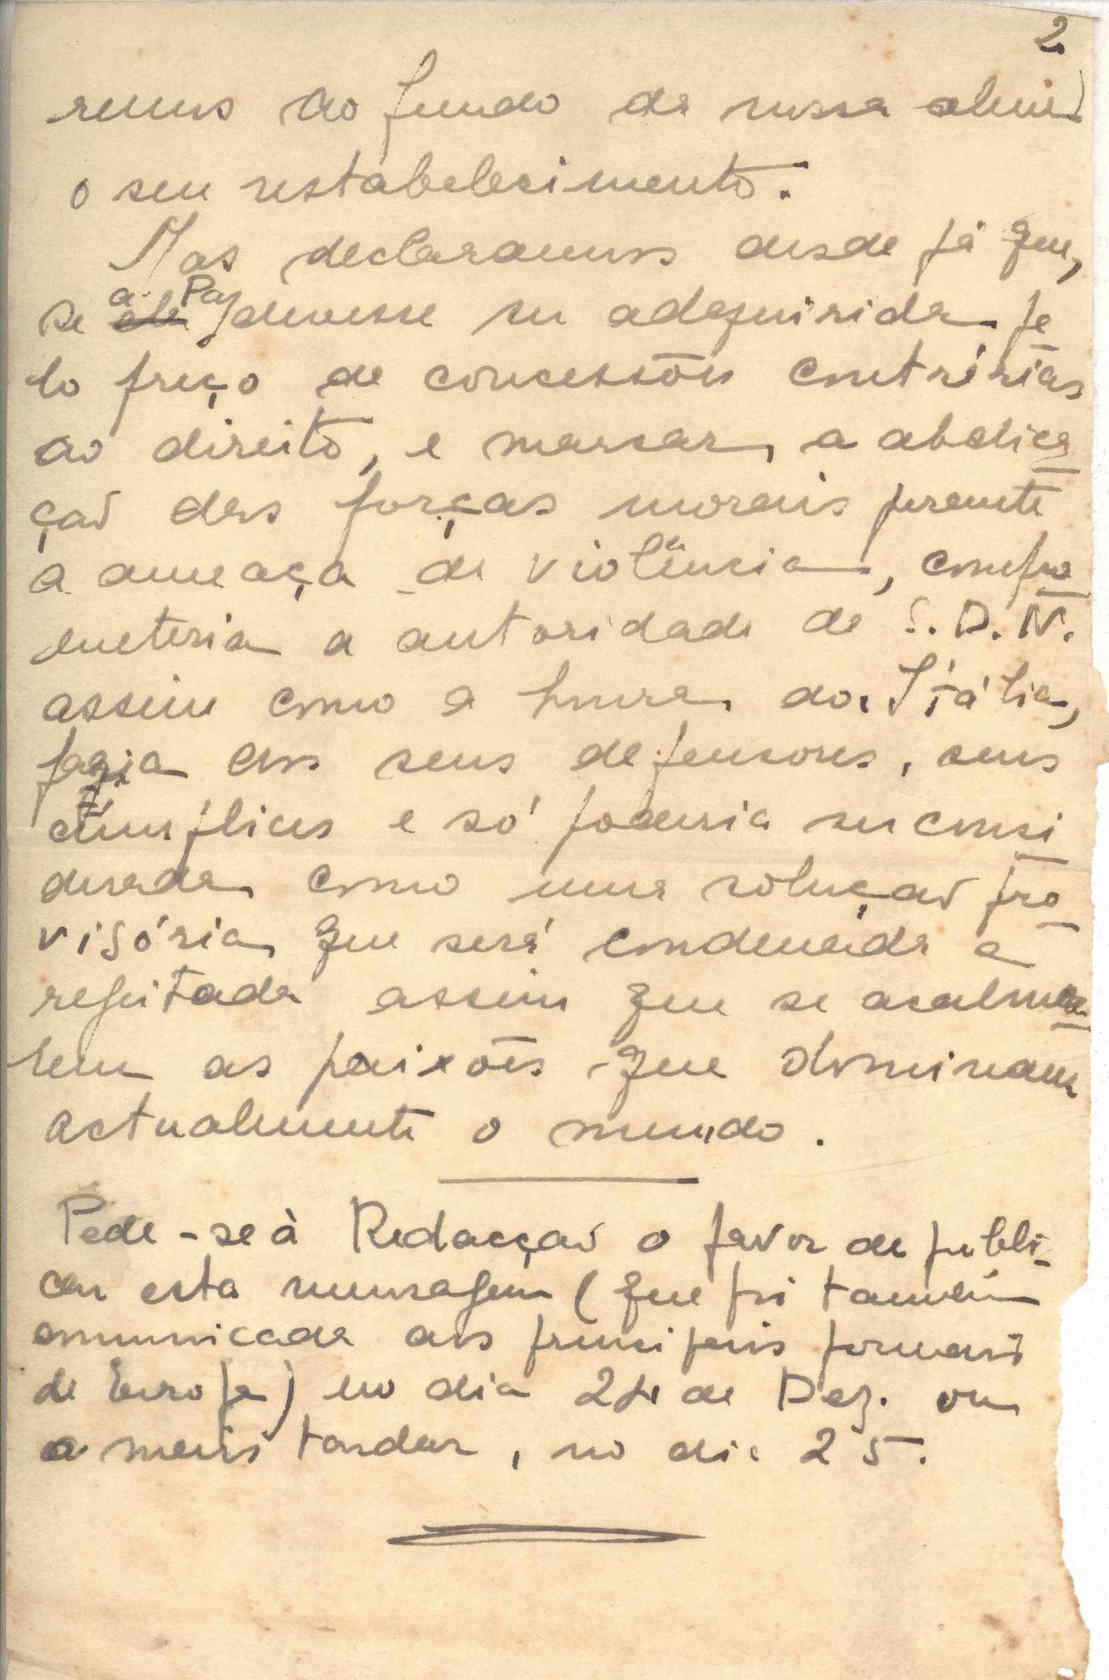 2
remos do fundo da nossa alma
o seu restabelecimento.
Mas declaramos desde já que,
a Paz
se ela devesse ser adequirida pe
lo preço de concessões contrárias
ao direito, e marcar a abdica
ção das forças morais perante
a ameaça da violência, compro
meteria a autoridade da S.D.N.
assim como a honra da Itália,
fazia aos seus defensores, seus
cúmplices e só poderia ser consi
derada como uma solução pro
visória que será condenada e
rejeitada assim que se acalma
rem as paixões que dominam
actualmente o mundo.
Pede-se à Redacção o favor de publi-
car esta mensagem (que foi também
comunicada aos principais jornais
de Europa) no dia 24 de Dez. ou
o mais tardar, no dia 25.